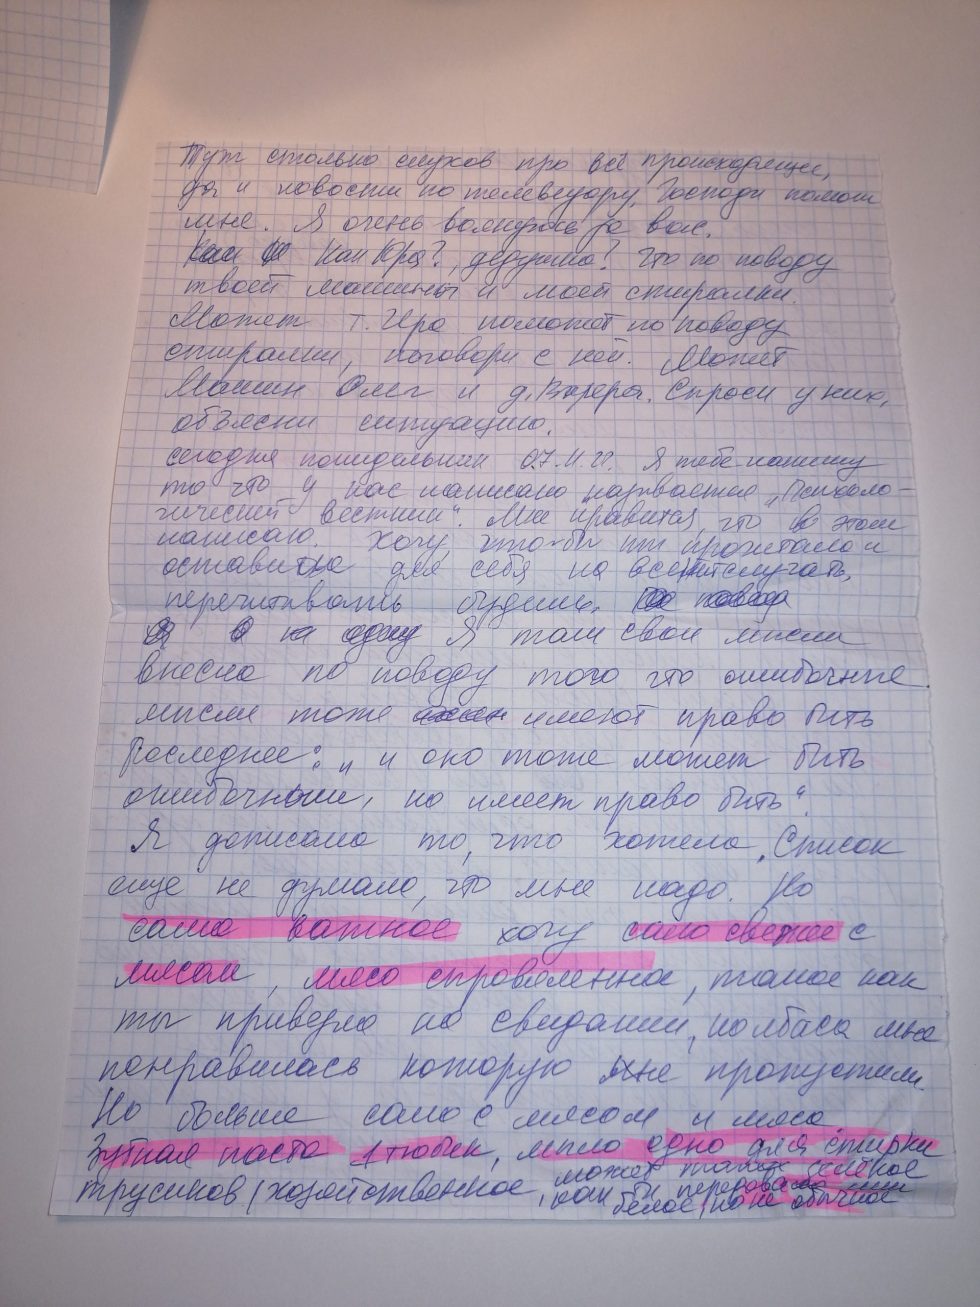 Тут столько слухов про всё происходящее,
да и новости по телевизору, Господи помоги
мне. Я очень волнуюсь за вас.
Как Юра?, дедушка? Что по поводу
твоей машины и моей стиралки.
Может т. Ира поможет по поводу
стиралки, поговори с ней. Может
Машин Олег и д. Валера. Спроси у них,
объясни ситуацию.
Сегодня понидельник 07.11.22. Я тебе напишу
то что у нас написано называется „Психоло-
гический вестник". Мне нравится, что в этом
написано. Хочу, что-бы ты прочитала и
оставила для себя на всякий случай,
перечитывать будешь.
Я там свои мысли
внесла по поводу того что ошибочные
мысли тоже имеют право быть
Последнее: „и оно тоже может быть
ошибочным, но имеет право быть"
Я дописала то, что хотела. Список
еще не думала, что мне надо. Но
самое важное хочу сало свежее с
мясом, мясо справленное, такое как
ты привезла на свидании, колбаса мне
понравилась которую мне пропустили.
Но больше сало с мясом и мясо
Зубная паста 1 тюбик, мыло одно для стирки
трусиков (хозяйственное, может также зелёное
как ты передавала или
белое, но не обычное